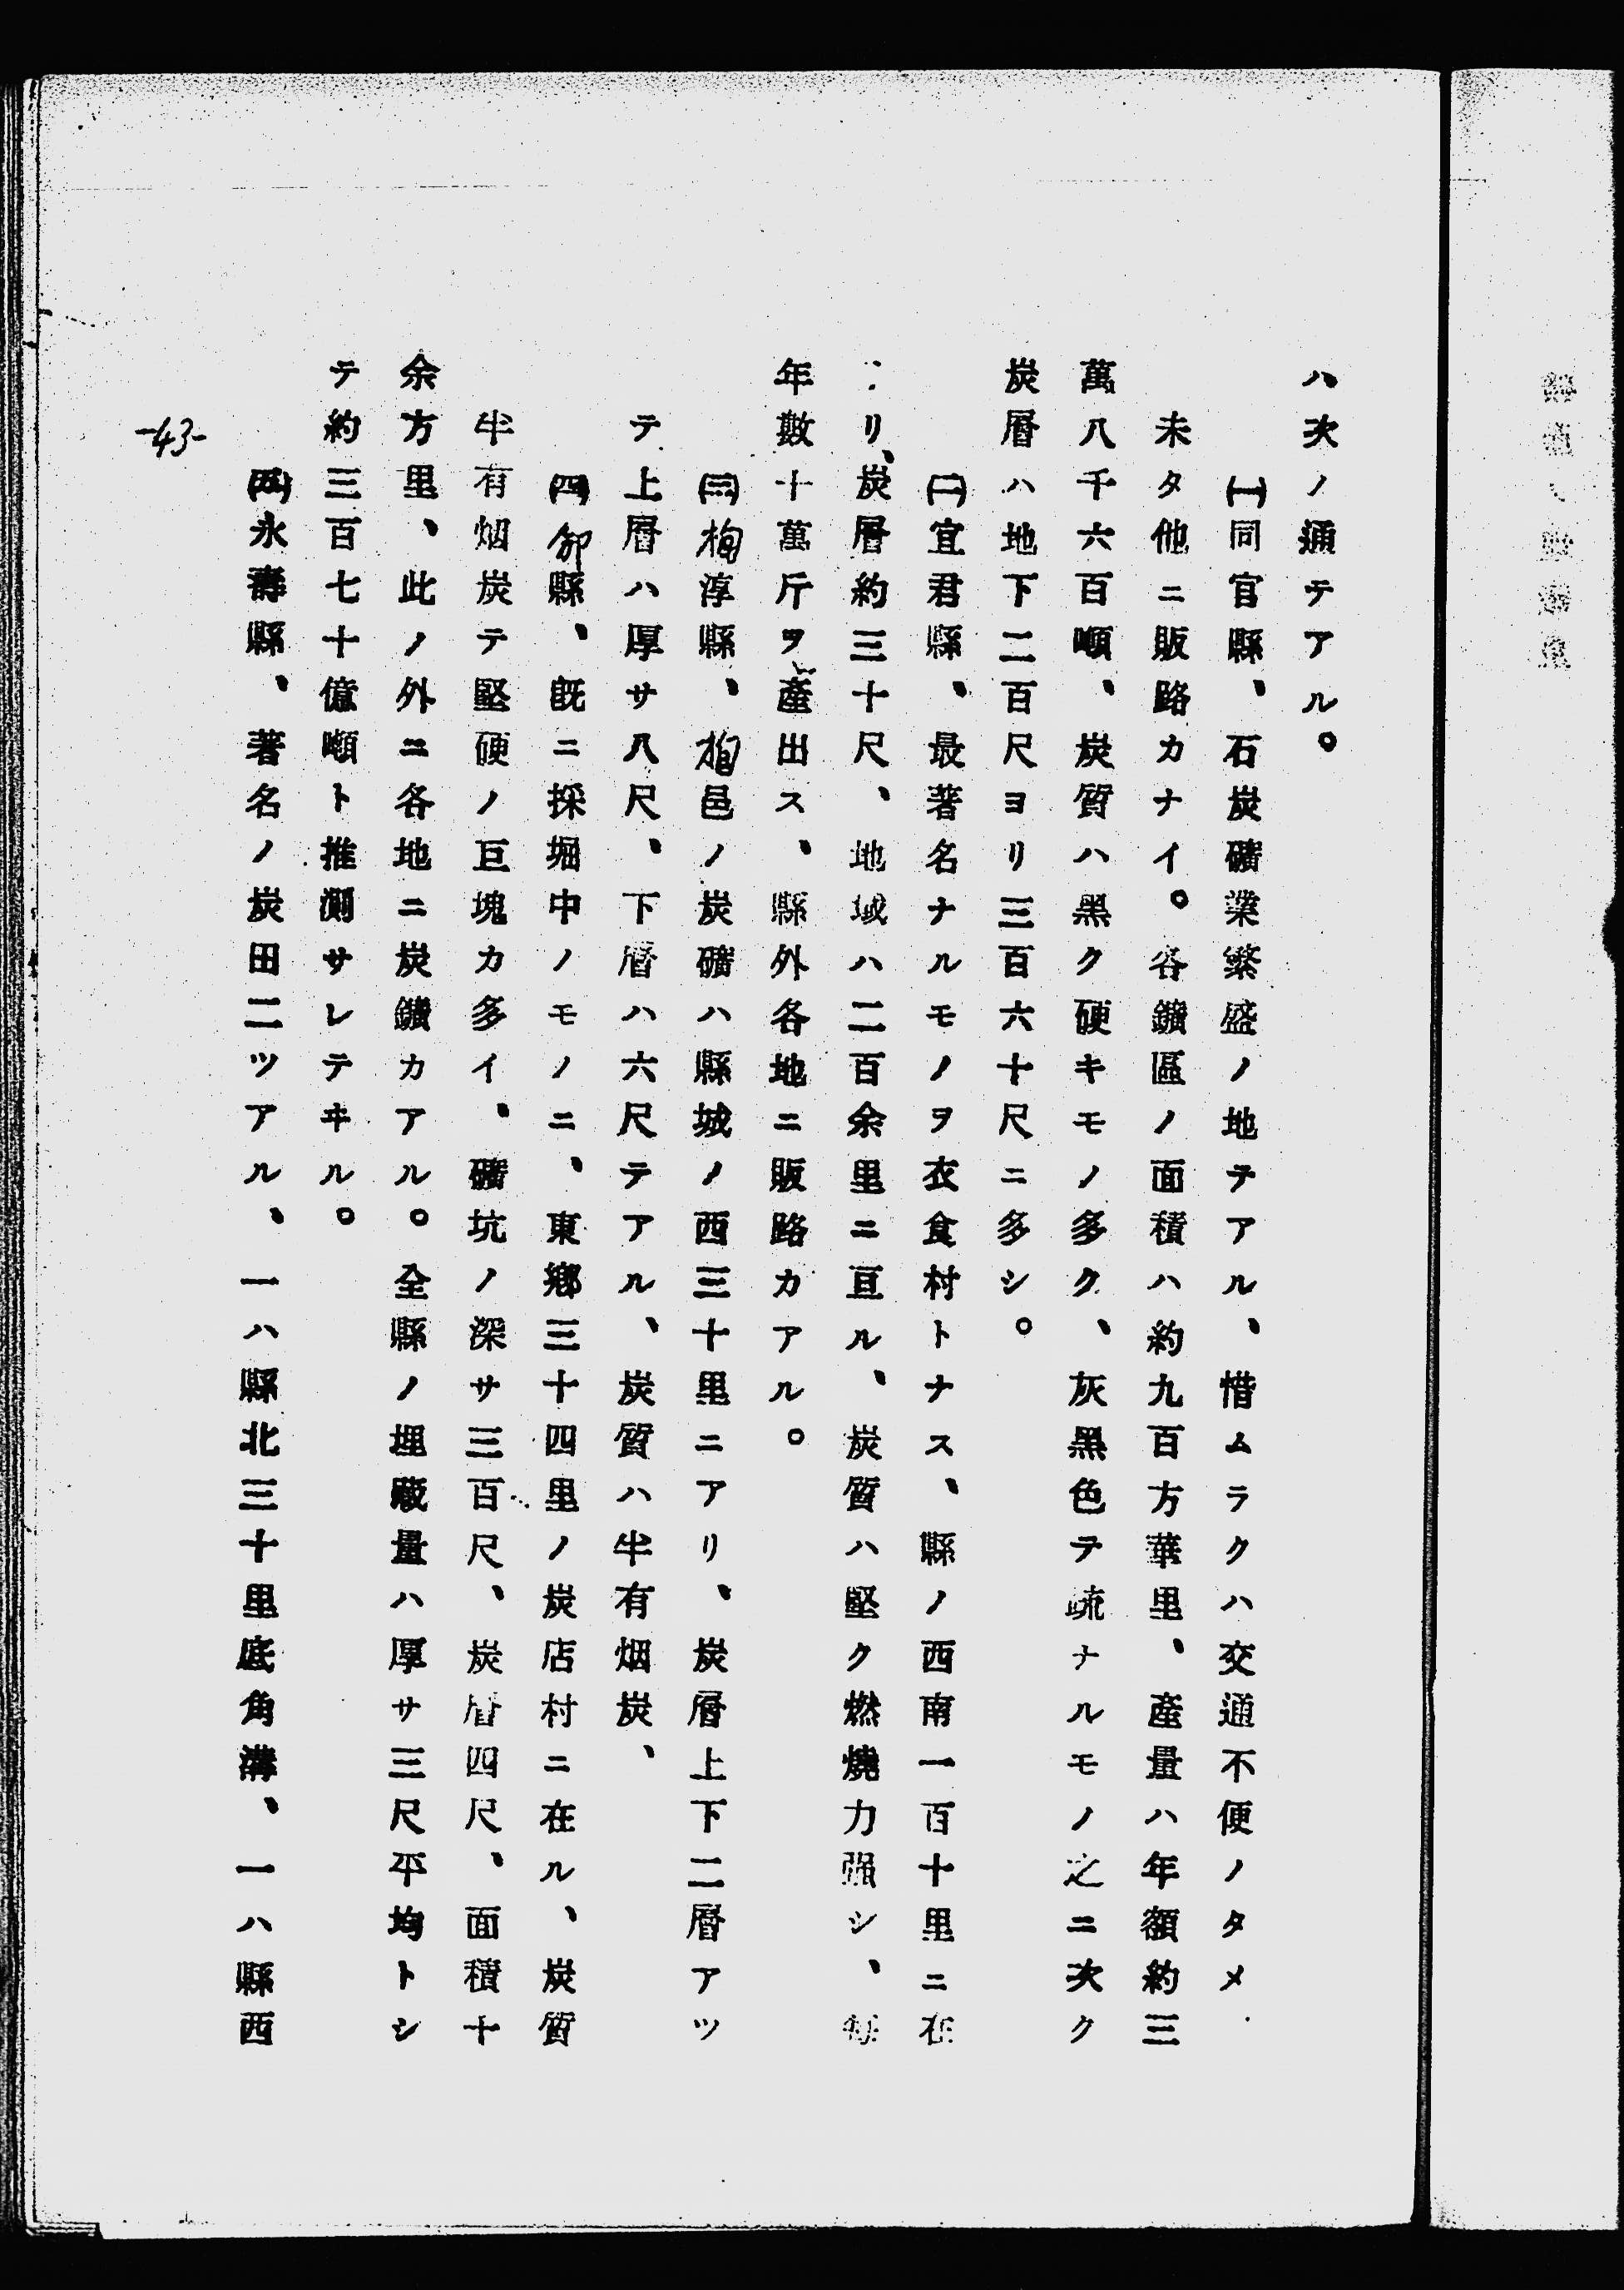 ハ次ノ通テアル。
㈠同官縣、石炭礦業繁盛ノ地テアル、惜ムラクハ交通不便ノタメ
未タ他ニ販路カナイ。各鑛區ノ面積ハ約九百方華里、產量ハ年額約三
萬八千六百噸、炭質ハ黑ク硬キモノ多ク、灰黑色テ疏ナルモノ之ニ次ク
炭層ハ地下二百尺ヨリ三百六十尺ニ多シ。
㈡宜君縣、最著名ナルモノヲ衣食村トナス、縣ノ西南一百十里ニ在
リ、炭層約三十尺、地域ハ二百余里ニ亘ル、炭質ハ堅ク燃燒力强シ、每
年數十萬斤ヲ產出ス、縣外各地ニ販路カアル。
㈢栒淳縣、栒邑ノ炭礦ハ縣城ノ西三十里ニアリ、炭層上下二層アツ
テ上層ハ厚サ八尺、下層ハ六尺テアル、炭質ハ半有烟炭、
㈣邠縣、旣ニ採堀中ノモノニ、東鄕三十四里ノ炭店村ニ在ル、炭質
半有烟炭テ堅硬ノ巨塊カ多イ、礦坑ノ深サ三百尺、炭層四尺、面積十
余方里、此ノ外ニ各地ニ炭鑛カアル。全縣ノ埋藏量ハ厚サ三尺平均トシ
テ約三百七十億噸ト推測サレテヰル。
㈤永壽縣、著名ノ炭田二ツアル、一ハ縣北三十里底角溝、一ハ縣西
-43-